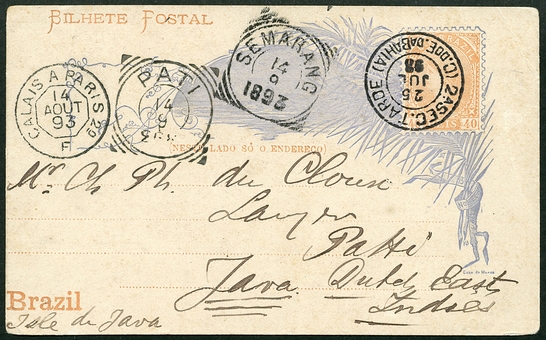 BILHETE POSTAL
CALAIS A PARIS
14
AOUT
93
F
PATI
14
9
SEMARANG
14
9
1893
2A SEC. TARDE
25
JUL
93
(C. DOE. DABAHIA)
40
(NESTE LADO SÓ O ENDEREÇO)
Mr. Ch. Ph. du Cloux
Patti
Java. Dutch East
Indies
Brazil
Isle de Java
Casa da Moeda